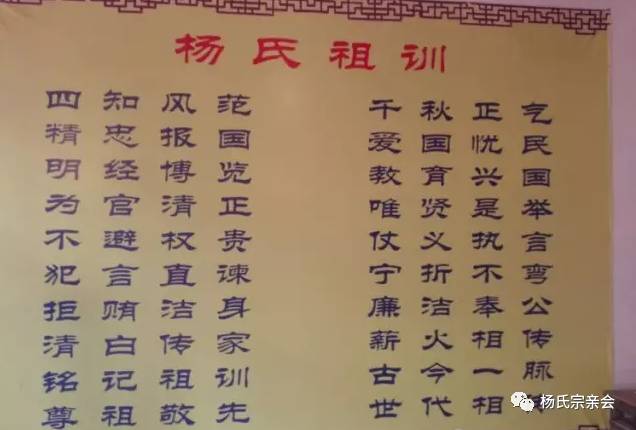 杨氏祖训
四知风范 千秋正气
精忠报国 爱国忧民
明经博览 教育兴国
为官清正 唯贤是举
不避权贵 仗义执言
犯言直谏 宁折不弯
拒贿洁身 廉洁奉公
清白传家 薪火相传
铭记祖训 古今一脉
尊祖敬先 世代相
杨氏宗亲会